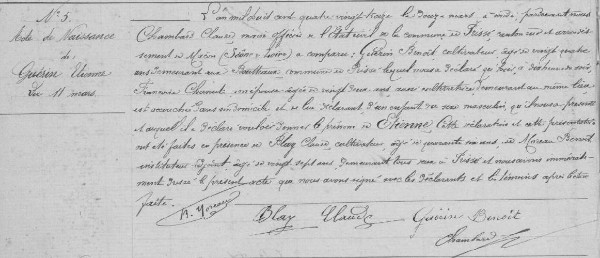 N° 5.
Acte de Naissance
de
Guérin Etienne
Du 11 mars.
L'an mil huit cent quatre vingt treize le douze mars, à midi, pardevant nous
Chambard Claude maire officier de l'Etat civil de la commune de Prissé, canton et arrondis-
sement de Mâcon (Saône & Loire) a comparu, Guérin Benoit, cultivateur âgé de vingt quatre
ans demeurant aux commune de Prissé lequel nous a déclaré qu'hier, à heures du soir,
Françoise son épouse âgée de vingt deux ans sans demeurant au même lieu
est accouchée dans son domicile et de lui déclarant, d'un enfant du sexe masculin, qu'il nous a présenté
et auquel il a déclaré vouloir donner le prénom de Etienne. Cette déclaration et cette présentation
ont été faites en présence de Blay Claude, cultivateur, âgé de quarante ans, de Moreau Benoit,
instituteur adjoint âgé de vingt sept ans demeurant tous deux à Prissé et nous avons immédiate-
ment dressé le présent acte que nous avons signé avec les déclarants et les témoins après lecture
faite.
B. Moreau
Blay Claude
Guérin Benoit
Chambard